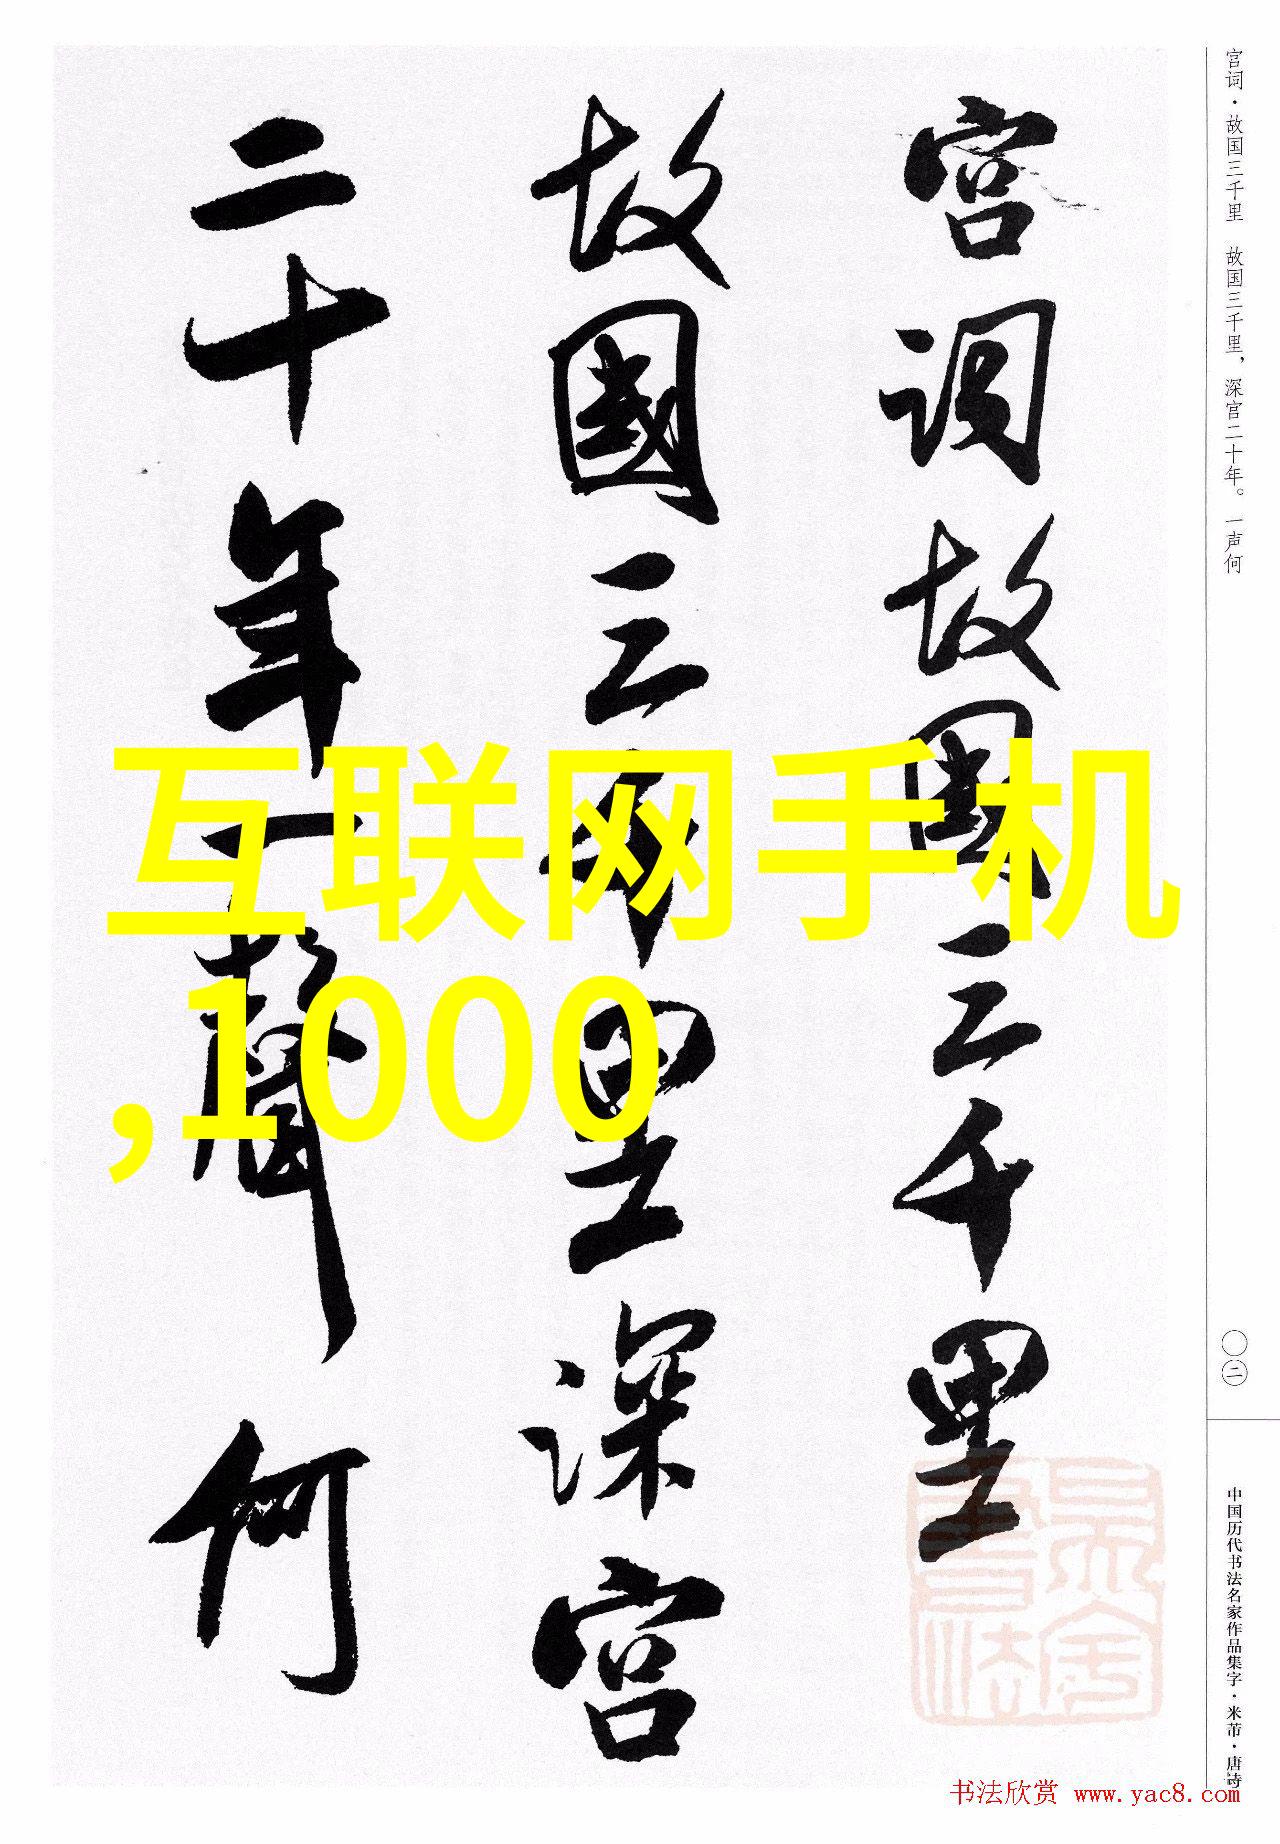 宫词故国三千里
故國三千里深宫
二十年一聲何
互联网手机
,1000
宫词·故国三千里 故国三千里，深宫二十年。一声何
〇二
中国历代书法名家作品集字·米芾·唐诗
书法欣赏 www.yac8.com